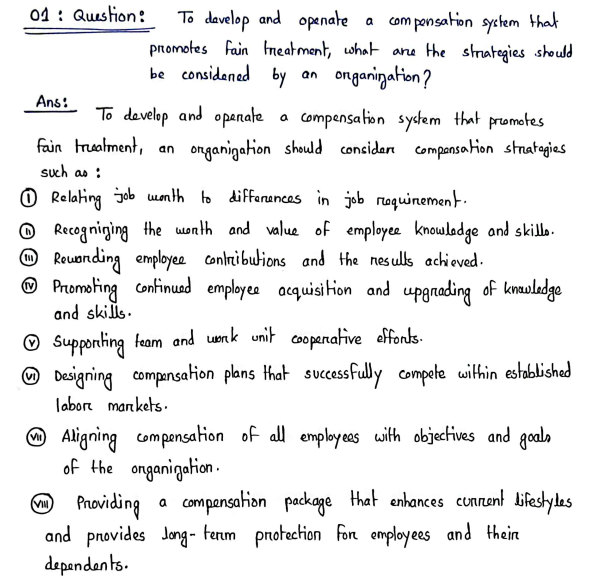 01 : Question: To develop and operate a compensation system that
promotes fair treatment, what are the strategies should
be considered by an organization?
Ans: To develop and operate a compensation system that promotes
fair treatment, an organization should consider compensation strategies
such as :
(I) Relating job worth to differences in job requirement.
(II) Recognizing the worth and value of employee knowledge and skills.
(III) Rewarding employee contributions and the results achieved.
(IV) Promoting continued employee acquisition and upgrading of knowledge
and skills.
(V) Supporting team and work unit cooperative efforts.
(VI) Designing compensation plans that successfully compete within established
labore markets.
(VII) Aligning compensation of all employees with objectives and goals
of the organization.
(VIII) Providing a compensation package that enhances current lifestyles
and provides long-term protection for employees and their
dependents.